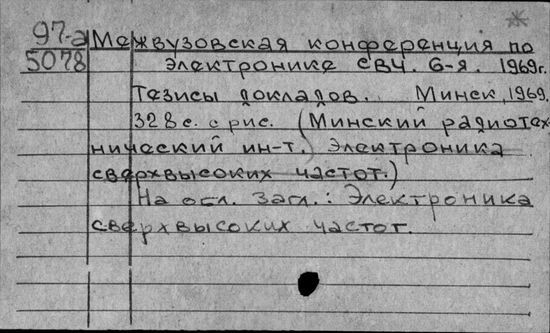 97-а Межвузовская конференция по
5078 электронике СВЧ. 6-я. 1969г.
Тезисы докладов. Минск, 1969.
328 с. с рис. (Минский радиотех-
нический ин-т. Электроника
сверхвысоких частот.)
На обл. загл.: Электроника
сверхвысоких частот.